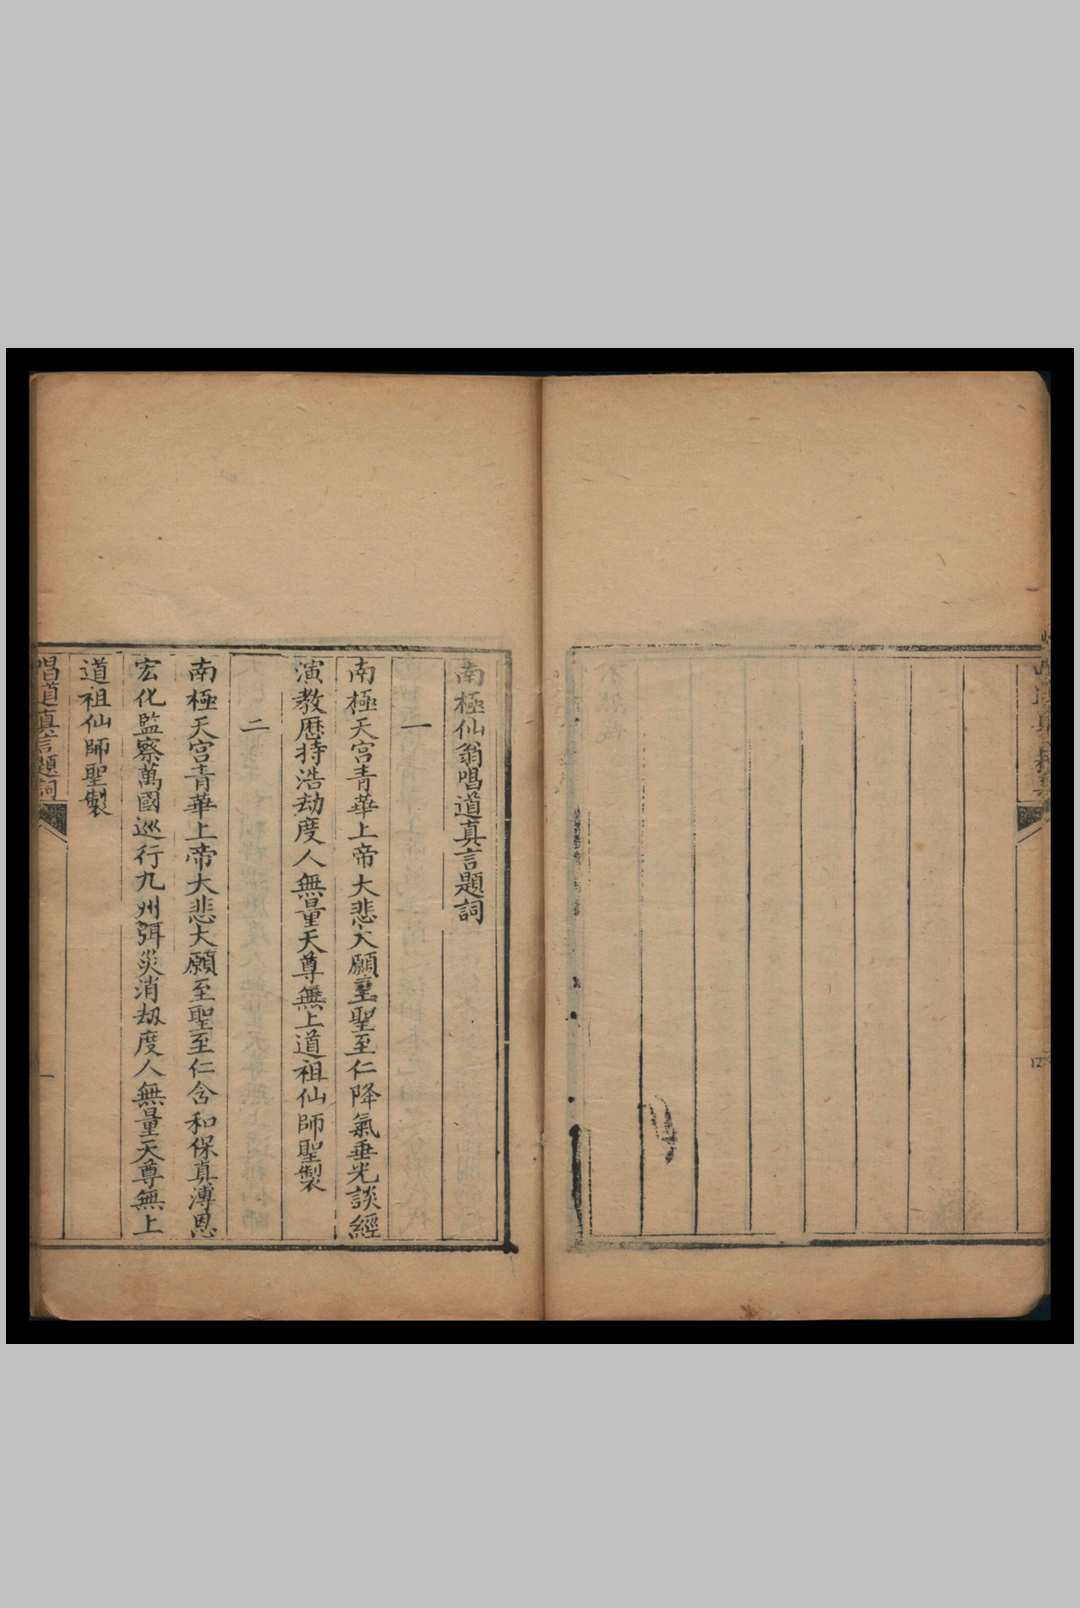 南極仙翁唱道真言題詞
一
南極天宮青華上帝大悲大願至聖至仁降氣垂光談經
演教歷持浩劫度人無量天尊無上道祖仙師聖製
二
南極天宮青華上帝大悲大願至聖至仁含和保真溥恩
宏化監察萬國巡行九州弭災消劫度人無量天尊無上
道祖仙師聖製
唱道真言題詞
一